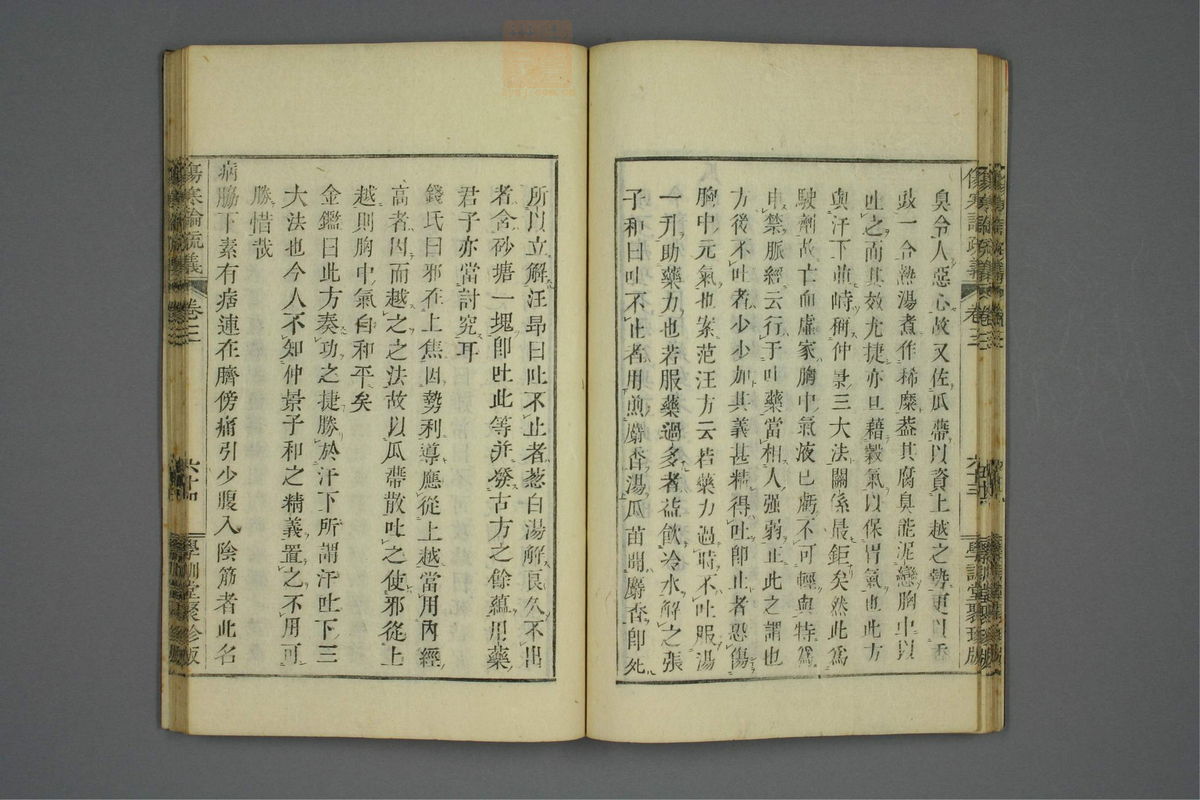 臭令人惡心故又佐瓜蔕以資上越之勢更以香
豉一合熱湯煮作稀糜葢其腐臭能泥戀胸中以
吐之而其效尤捷亦且藉穀氣以保胃氣也此方
與汗下並峙稱仲景三大法關係最鉅矣然此爲
駛劑故亡血虛家胸中氣液已虧不可輕與特爲
申禁脈經云行于吐藥當相人强弱正此之謂也
方後不吐者少少加其義甚精得吐卽止者恐傷
胸中元氣也案范汪方云若藥力過時不吐服湯
一升助藥力也若服藥過多者益飮冷水解之張
子和曰吐不止者用煎麝香湯瓜苗聞麝香卽死
所以立解汪昂曰吐不止者葱白湯解良久不出
者含砂塘一塊卽吐此等并發古方之餘蘊用藥
君子亦當討究耳
錢氏曰邪在上焦因勢利導應從上越當用內經
高者因而越之之法故以瓜蔕散吐之使邪從上
越則胸中氣自和平矣
金鑑曰此方奏功之捷勝於汗下所謂汗吐下三
大法也今人不知仲景子和之精義置之不用可
勝惜哉
病脇下素有痞連在臍傍痛引少腹入陰筋者此名
傷寒論疏義 卷三 六十三 學訓堂聚珍版
傷寒論疏義 卷三 六十四 學訓堂聚珍版